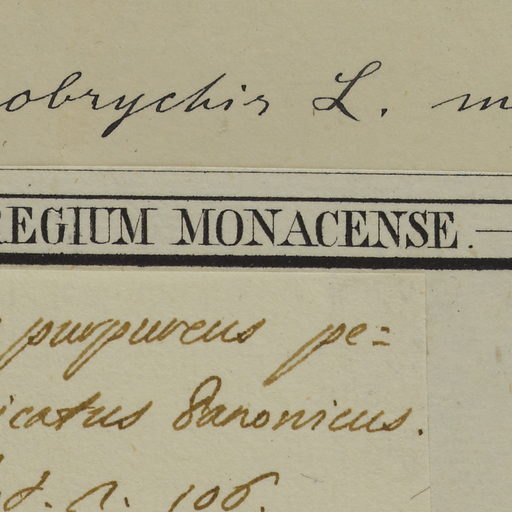 obrychis L. m
REGIUM MONACENSE.
purpureus pe=
icatus Danonicus.
106.